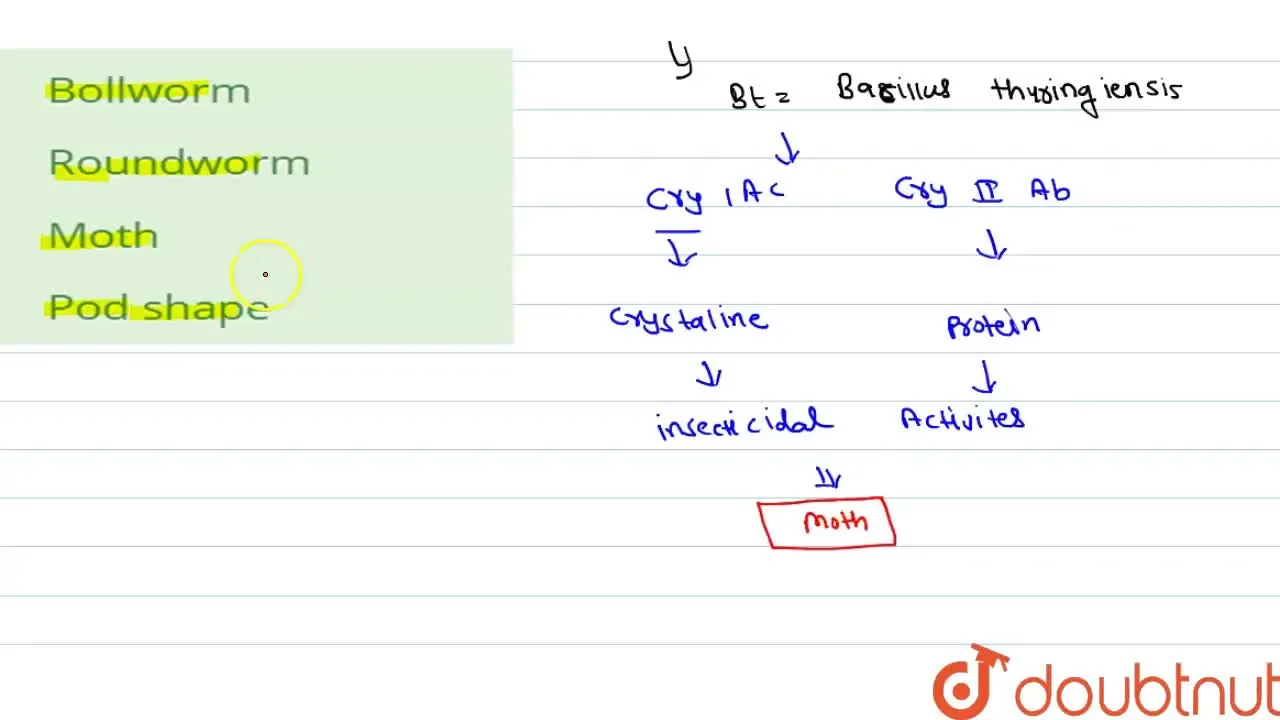 Bollworm
Roundworm
Moth
Pod shape
y
Bt = Bacillus thyringiensis
Cry 1 Ac Cry II Ab
Crystaline Protein
insecticidal Activites
Moth
doubtnut